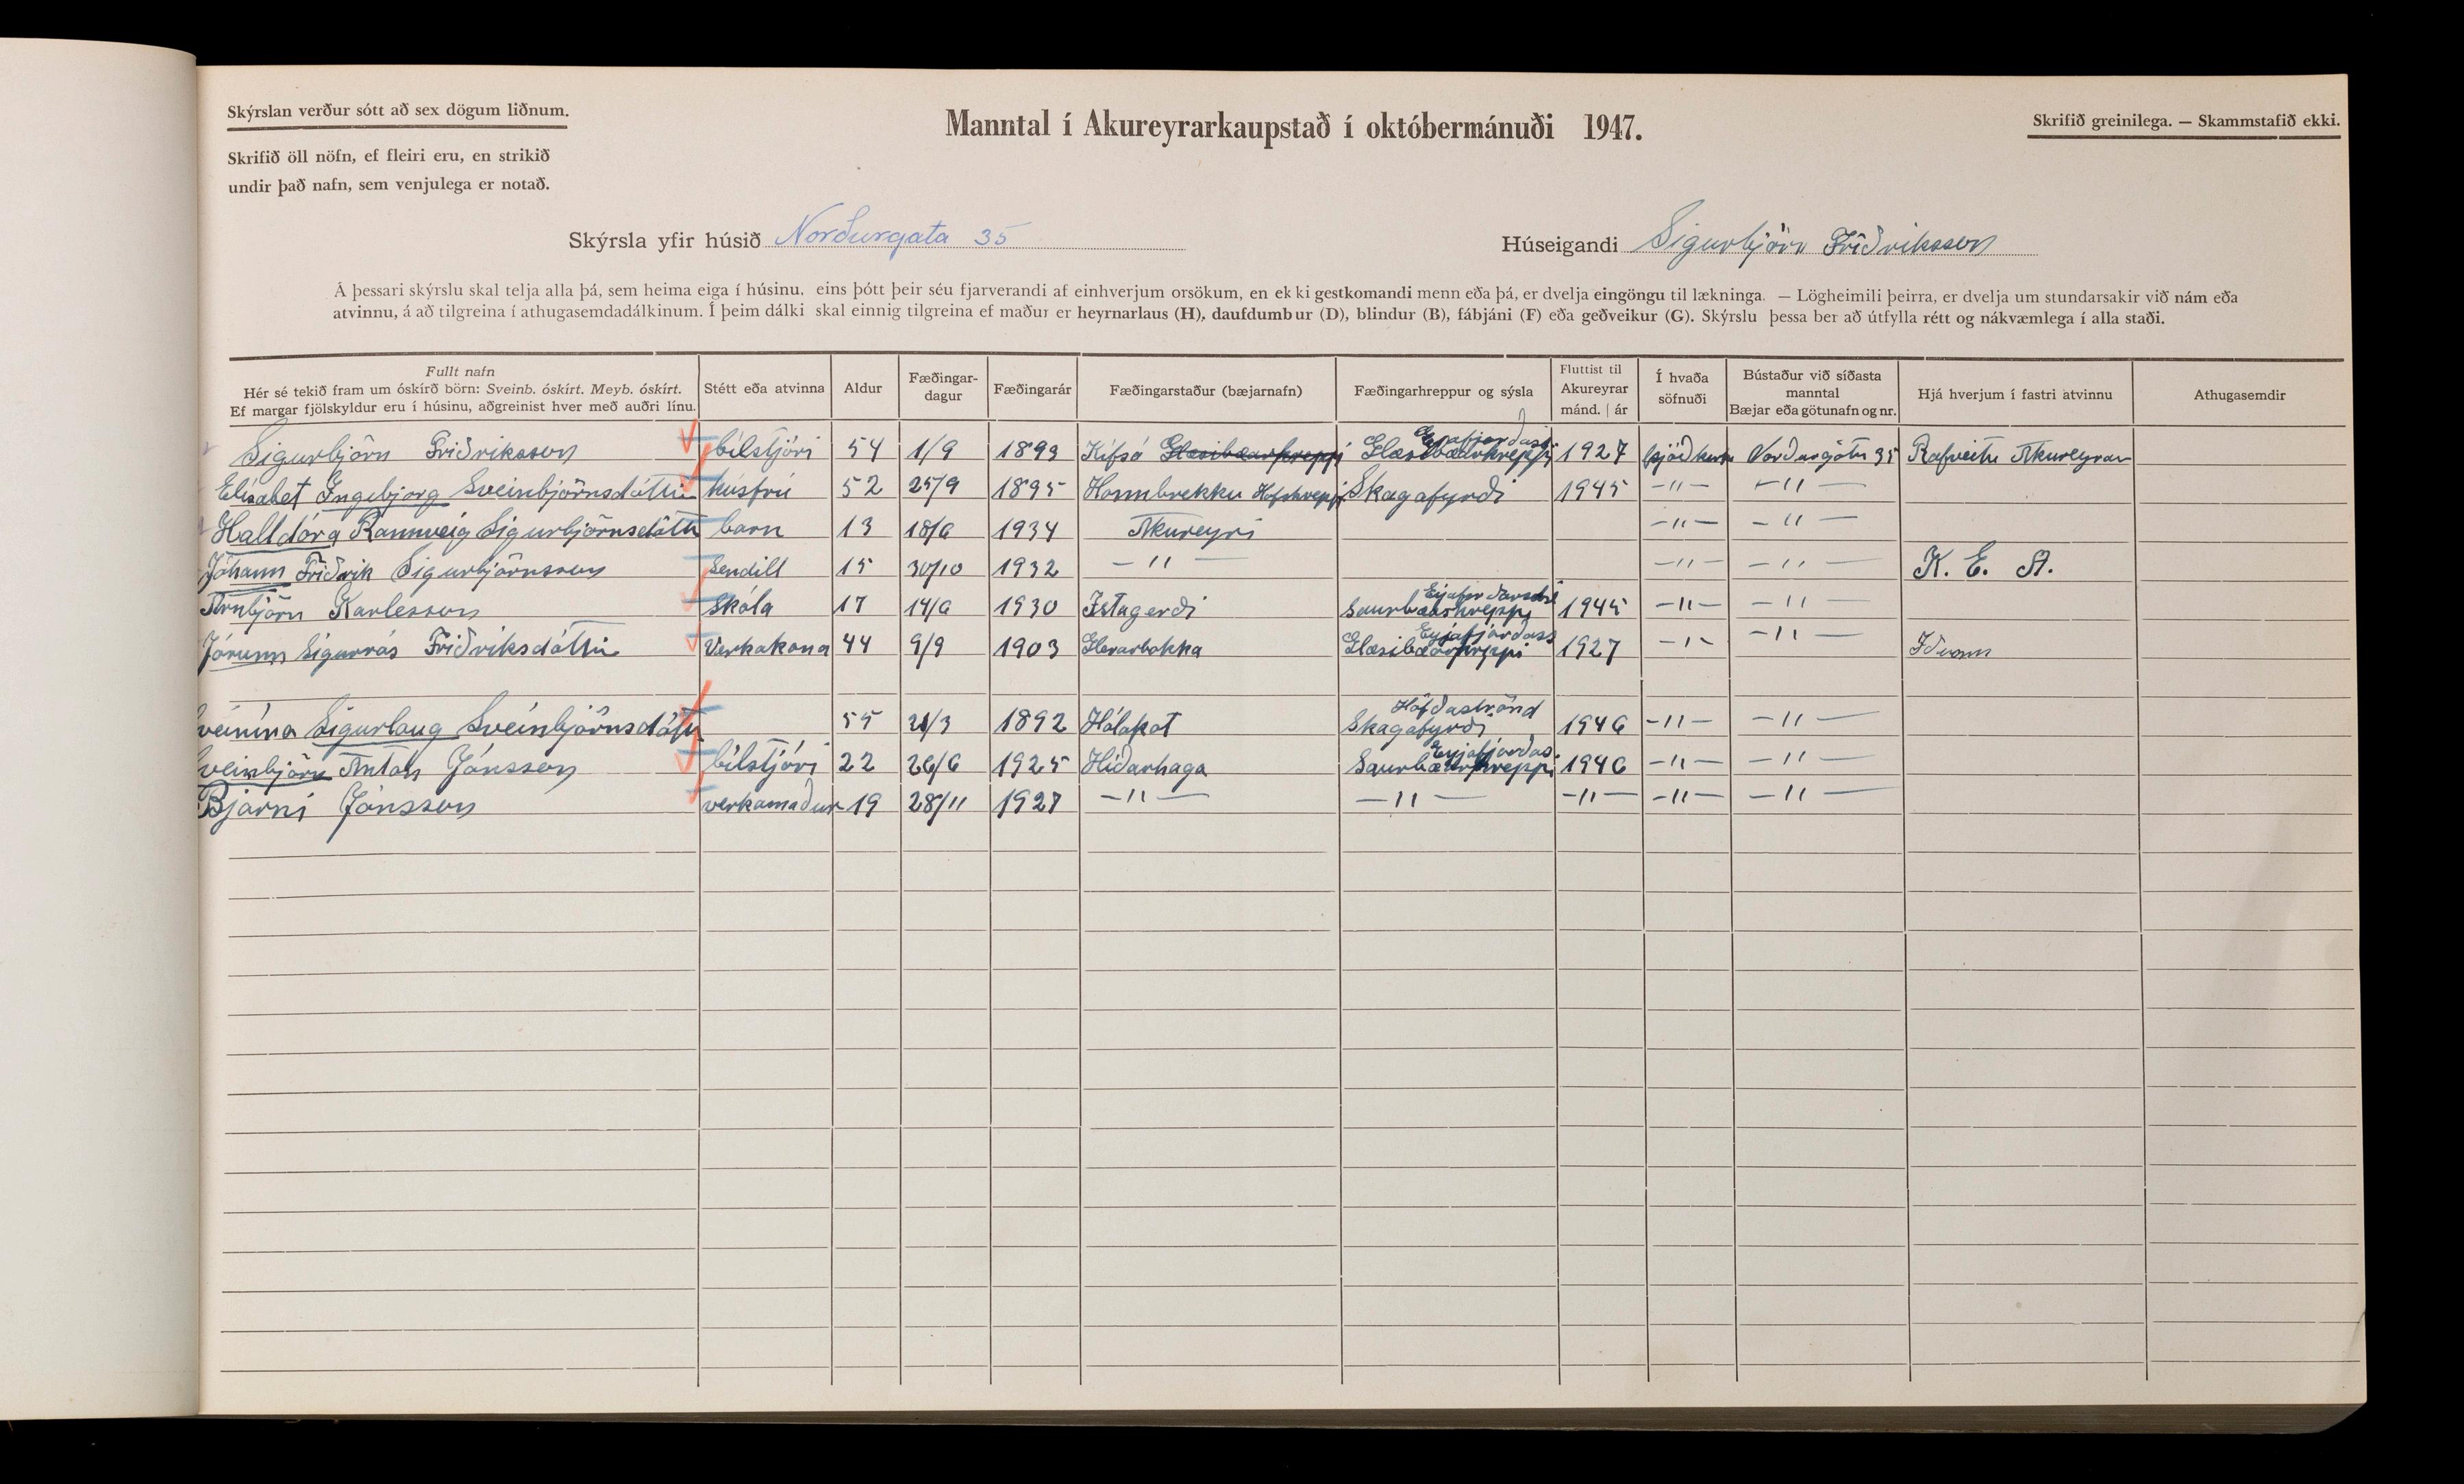 Skýrslan verður sótt að sex dögum liðnum.
Manntal í Akureyrarkaupstað í októbermánuði 1947.
Skrifið greinilega. — Skammstafið ekki.
Skrifið öll nöfn, ef fleiri eru, en strikið
undir það nafn, sem venjulega er notað.
Skýrsla yfir húsið Norðurgata 35
Húseigandi Sigurbjörn Friðriksson
Á þessari skýrslu skal telja alla þá, sem heima eiga í húsinu. eins þótt þeir séu fjarverandi af einhverjum orsökum, en ekki gestkomandi menn eða þá, er dvelja eingöngu til lækninga. — Lögheimili þeirra, er dvelja um stundarsakir við nám eða
atvinnu, á að tilgreina í athugasemdadálkinum. Í þeim dálki skal einnig tilgreina ef maður er heyrnarlaus (H), daufdumbur (D), blindur (B), fábjáni (F) eða geðveikur (G). Skýrslu þessa ber að útfylla rétt og nákvæmlega í alla staði.
Fullt nafn
Hér sé tekið fram um óskírð börn: Sveinb. óskírt. Meyb. óskírt.
Ef margar fjölskyldur eru í húsinu, aðgreinist hver með auðri línu.
Stétt eða atvinna
Aldur
Fæðingar-
dagur
Fæðingarár
Fæðingarstaður (bæjarnafn)
Fæðingarhreppur og sýsla
Fluttist til
Akureyrar
mánd. | ár
Í hvaða
söfnuði
Bústaður við síðasta
manntal
Bæjar eða götunafn og nr.
Hjá hverjum í fastri atvinnu
Athugasemdir
Sigurbjörn Friðriksson bílstjóri 54 1/9 1893 Kífsá Glæsibæarhreppi Glæsibæarhreppi Eyjafjarðass 1927 þjóðkirkju Norðurgötu 35 Rafveitu Akureyrar
Elísabet Ingibjörg Sveinbjörnsdóttir húsfrú 52 25/9 1895 Hornbrekku Hofshreppi Skagafyrði 1945 -"- -"-
Halldóra Rannveig Sigurbjörnsdóttir barn 13 18/6 1934 Akureyri -"- -"-
Jóhann Friðrik Sigurbjörnsson Sendill 15 30/10 1932 -"- -"- -"- K. E. A.
Arnbjörn Karlesson Skóla 17 14/6 1930 Ístagerði Saurbæarhreppi Eyjafjarðarsýsl 1945 -"- -"-
Jórunn Sigurrós Friðriksdóttir Verkakona 44 9/9 1903 Glerárbakka Glæsibæarhreppi Eyjafjarðass 1927 -"- -"- Iðunn
Sveinína Sigurlaug Sveinbjörnsdóttir 55 21/3 1892 Hólakot Skagafyrði Höfðaströnd 1946 -"- -"-
Sveinbjörn Anton Jónsson bílstjóri 22 26/6 1925 Hlíðarhaga Saurbæarhreppi Eyjafjarðas 1946 -"- -"-
Bjarni Jónsson verkamaður 19 28/11 1927 -"- -"- -"- -"- -"-